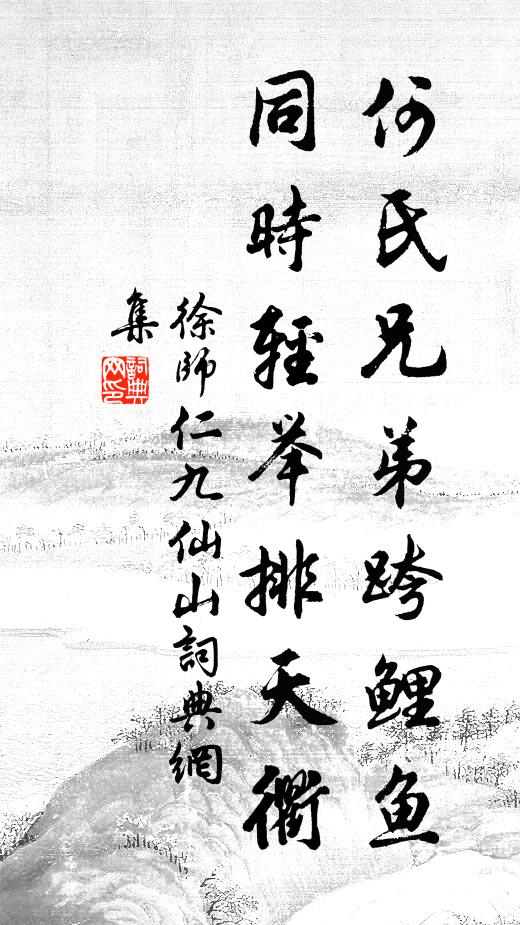 何氏兄弟跨鲤鱼
同時輕举排天衢
徐師仁九仙山詞典網
集
詞典网印